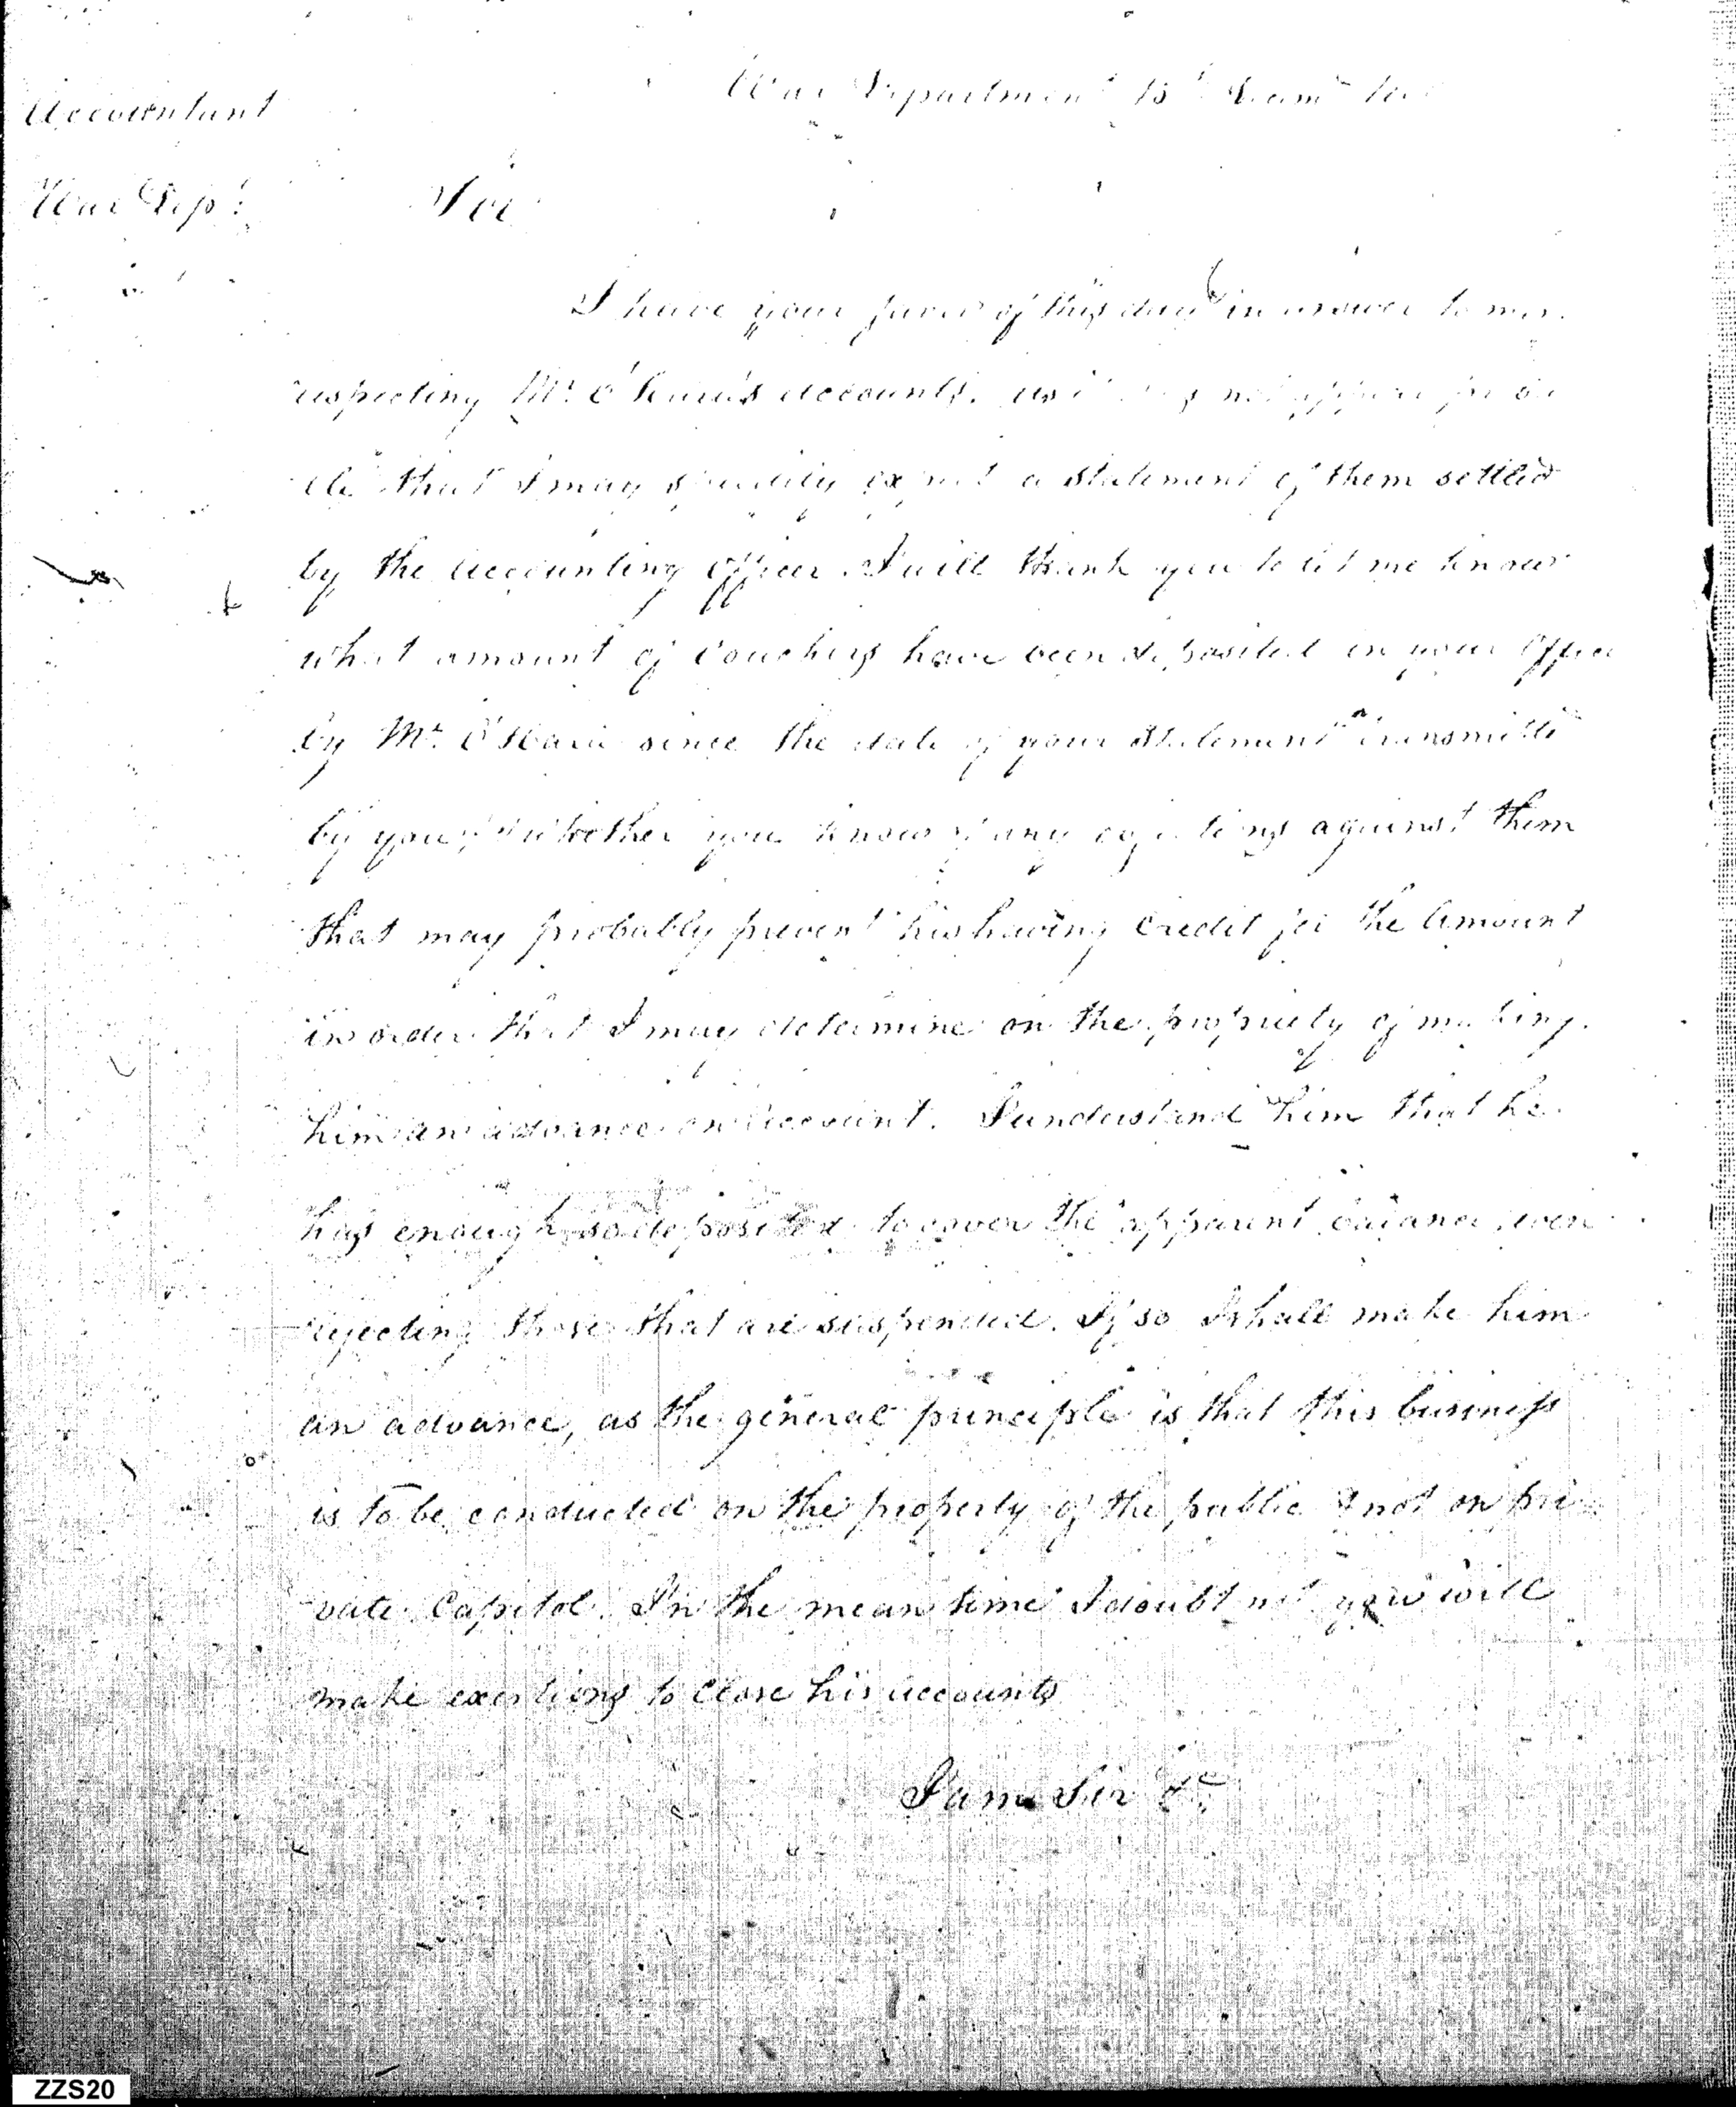 War Department 15th Decemr
Accountant
War Dept.
Sir
I have your favor of this day in answer to mine
respecting Mr. O'Hara's accounts. as it does not appear proba
ble that I may speedily expect a statement of them settled
by the accounting officer. I will thank you to let me know
what amount of Vouchers have been deposited in your Office
by Mr. O'Hara since the date of your statement transmitted
by you; & whether you know of any objections against them
that may probably prevent his having Credit for the Amount
in order that I may determine on the propriety of making
him an advance on account. I understand of him that he
has enough so deposited to cover the apparent balance, even
rejecting those that are suspended. If so I shall make him
an advance, as the general principle is that this business
is to be conducted on the property of the public & not on pri
vate Capitol. In the mean time I doubt not you will
make exertions to Close his accounts
I am Sir &c.
ZZS20